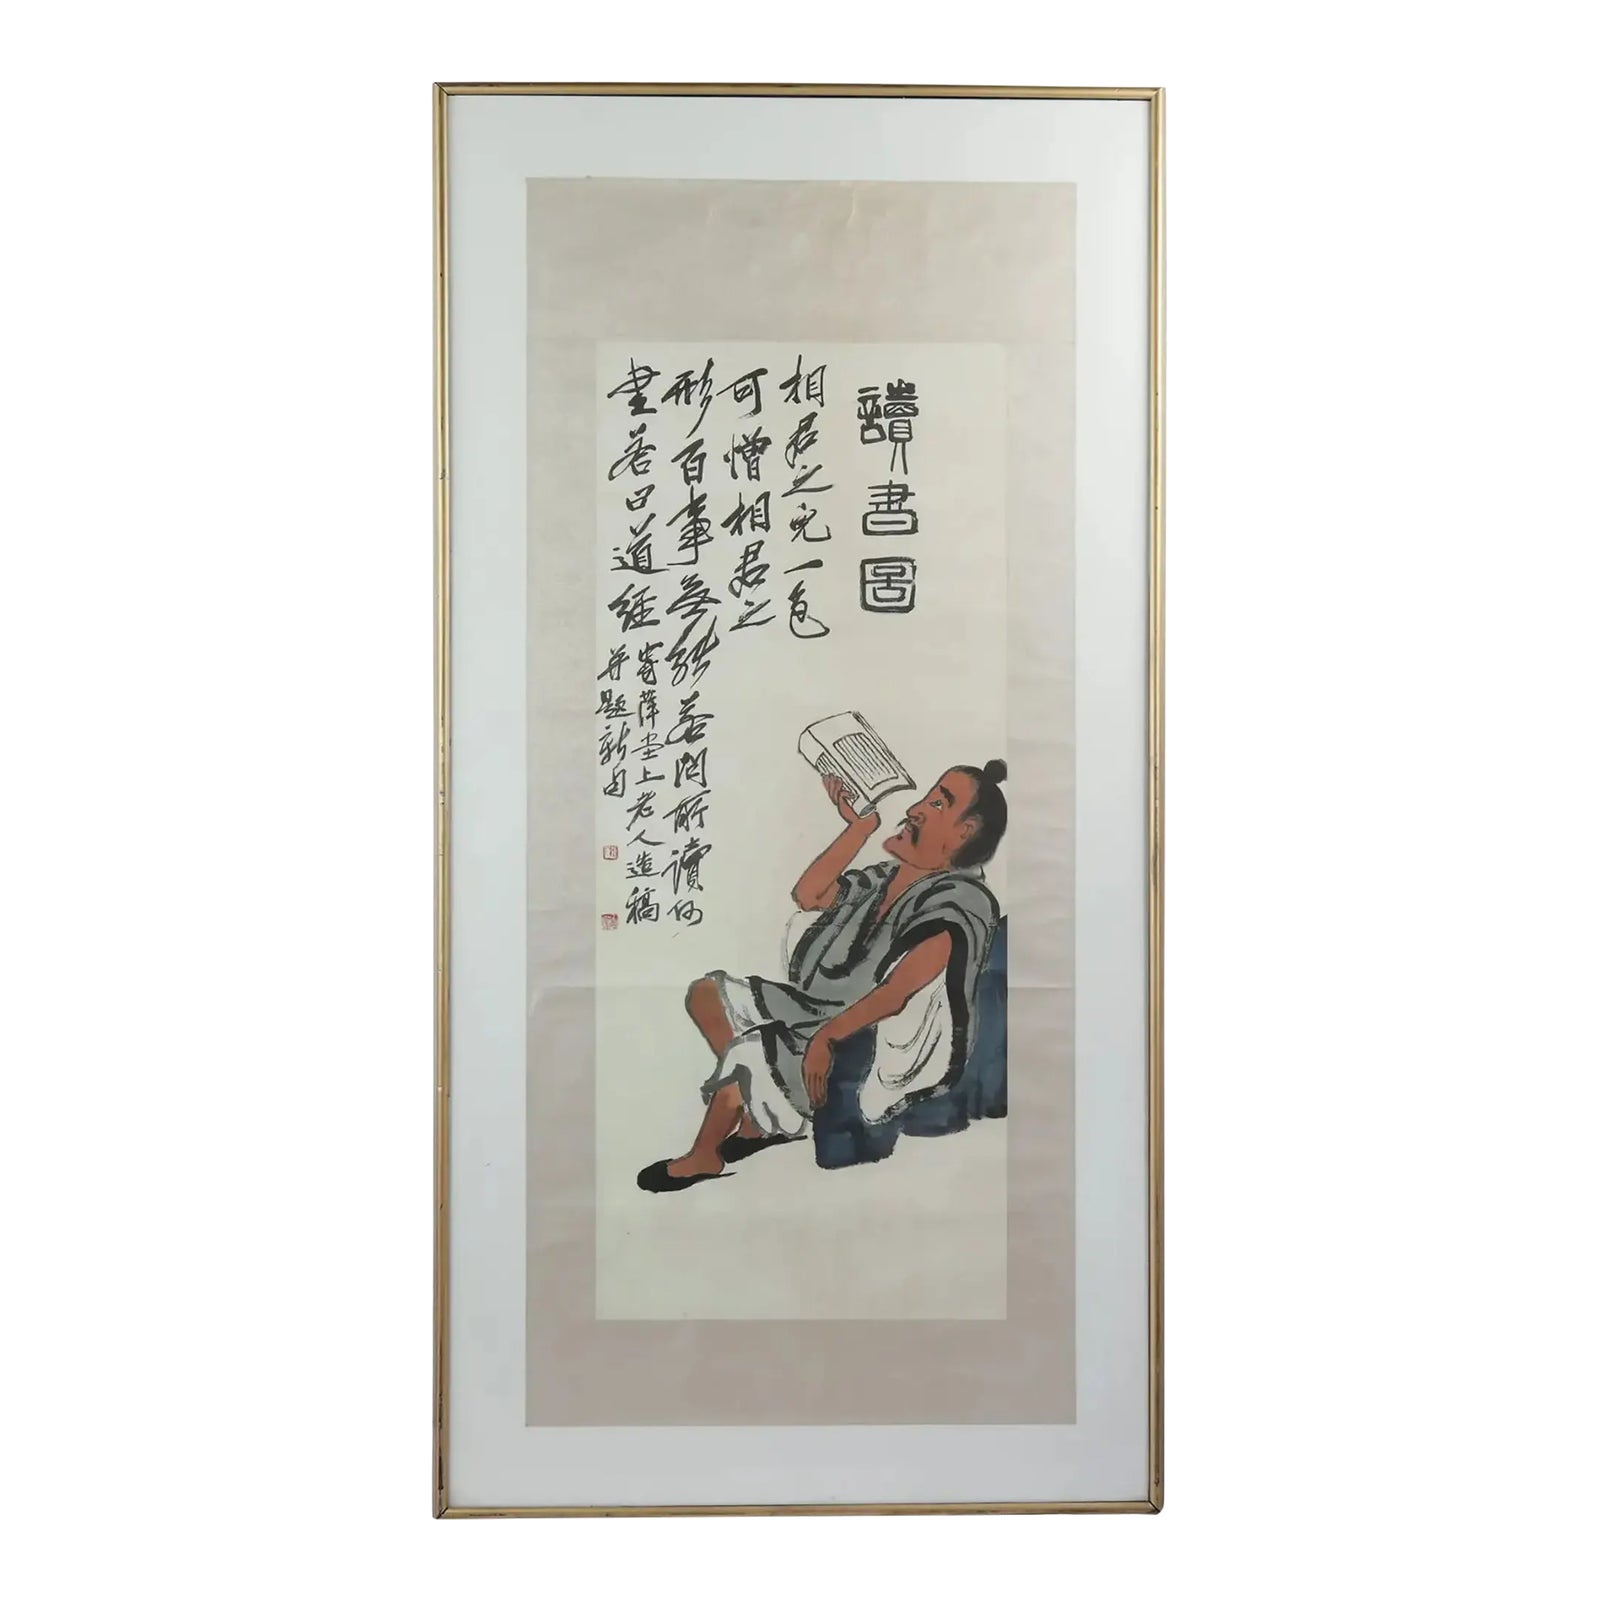 讀書圖
相君之皃一色
可憎相君之
形百事無能若問所讀何
書答曰道經
寄萍堂上老人造稿
并題新句